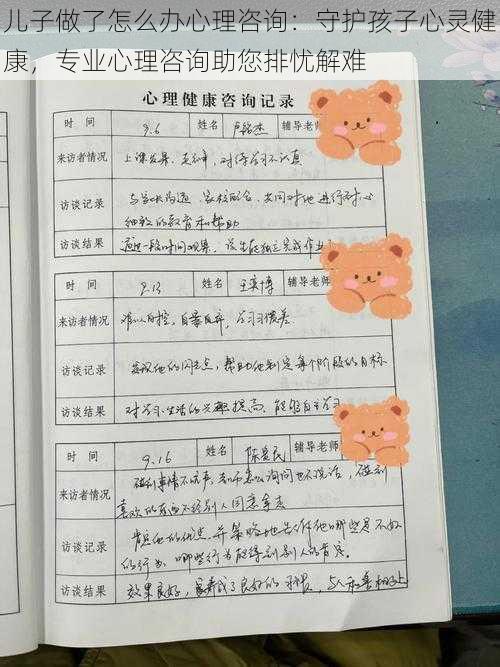 儿子做了怎么办心理咨询：守护孩子心灵健
康，专业心理咨询助您排忧解难
心理健康咨询记录
时 间 9.6 姓名 辅导老师
来访者情况 上课发呆、对待学习不认真
访谈记录 与家长沟通、家校配合、共同对他进行耐心
细致的教育和帮助
访谈结果 通过一段时间观察，该生能独立完成作业
时 间 9.13 姓名 王奕博 辅导老师
来访者情况 难以自控，自暴自弃，学习习惯差
访谈记录 发现他的闪光点，帮助他制定每个阶段的目标
访谈结果 对学习生活的兴趣提高，能够自主学习
时 间 9.16 姓名 辅导老师
来访者情况 碰到事情不吭声，老师怎么询问也不说话，碰到
喜欢的东西不经别人同意拿走
访谈记录 肯定他的优点，并策略地告诉他哪些是不好
的行为，哪些行为能得到别人的肯定。
访谈结果 效果良好，养成了良好的习惯，与人和善相处